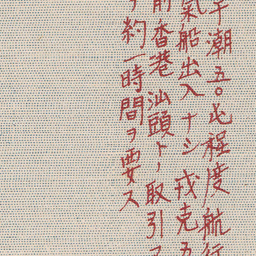 潮五〇七程度航行
氣船出入ナシ戎克五
前香港汕頭ト取引
約一時間ヲ要ス